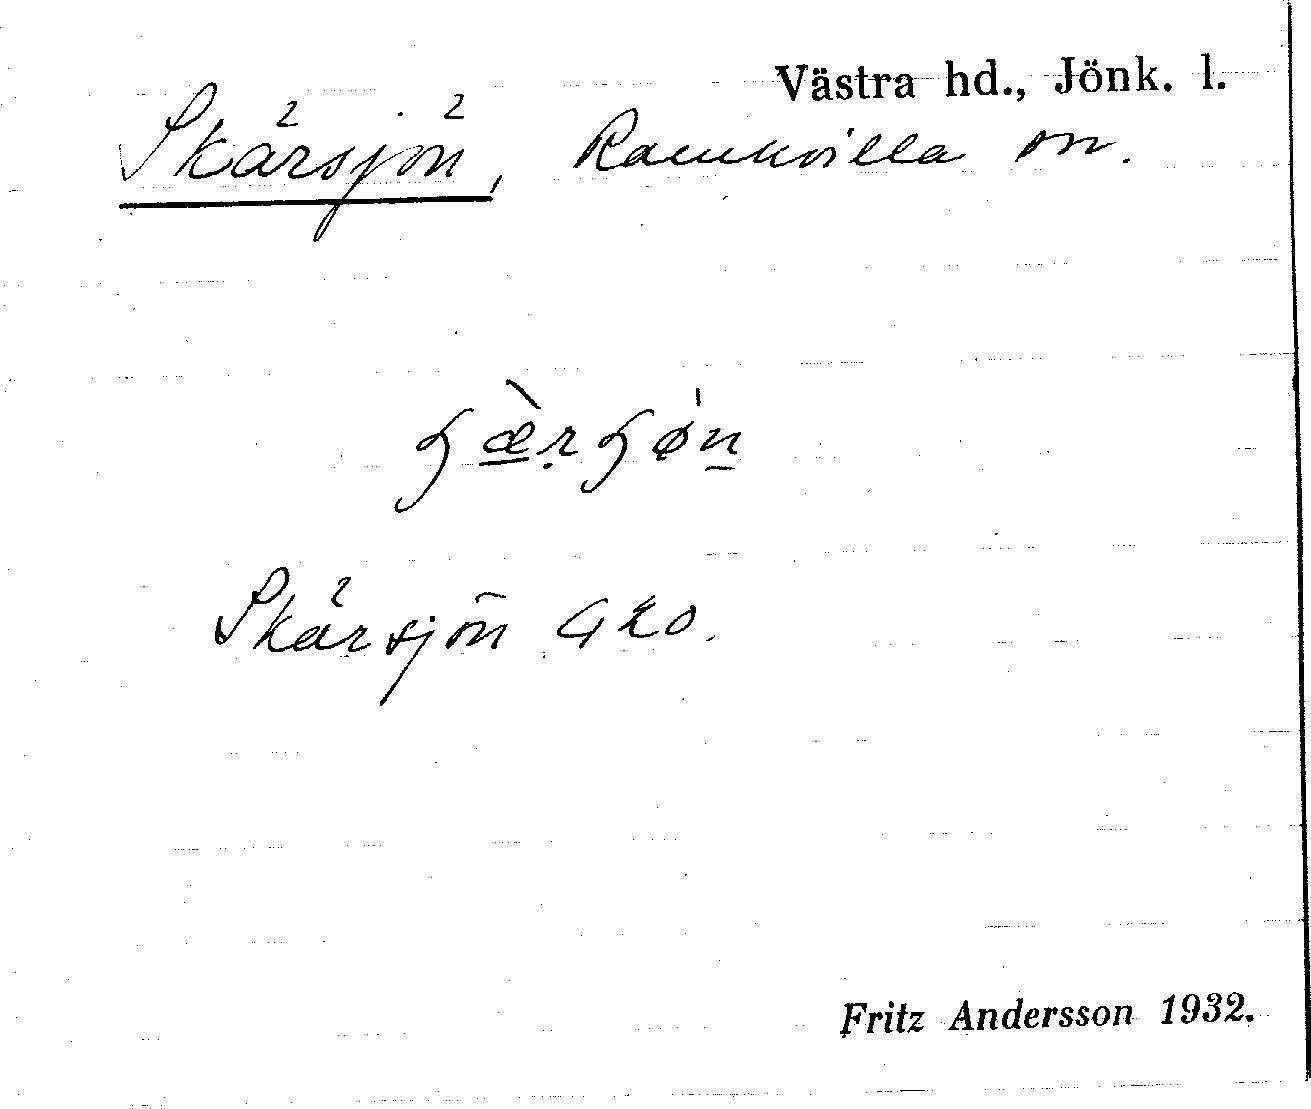 Västra hd., Jönk. l.
Skärsjön, Ramkvilla sn.
ɧæ̀rɧǿn
Skärsjön GEO.
Fritz Andersson 1932.